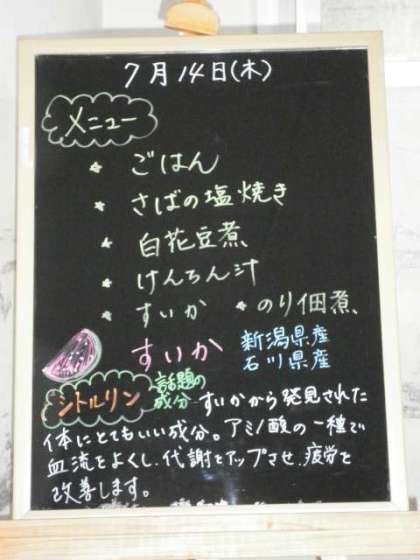 7月14日(木)
メニュー
* ごはん
* さばの塩焼き
* 白花豆煮
* けんちん汁
* すいか * のり佃煮
すいか 新潟県産
石川県産
シトルリン 話題の成分 すいかから発見された
体にとてもいい成分。アミノ酸の一種で
血流をよくし、代謝をアップさせ、疲労を
改善します。